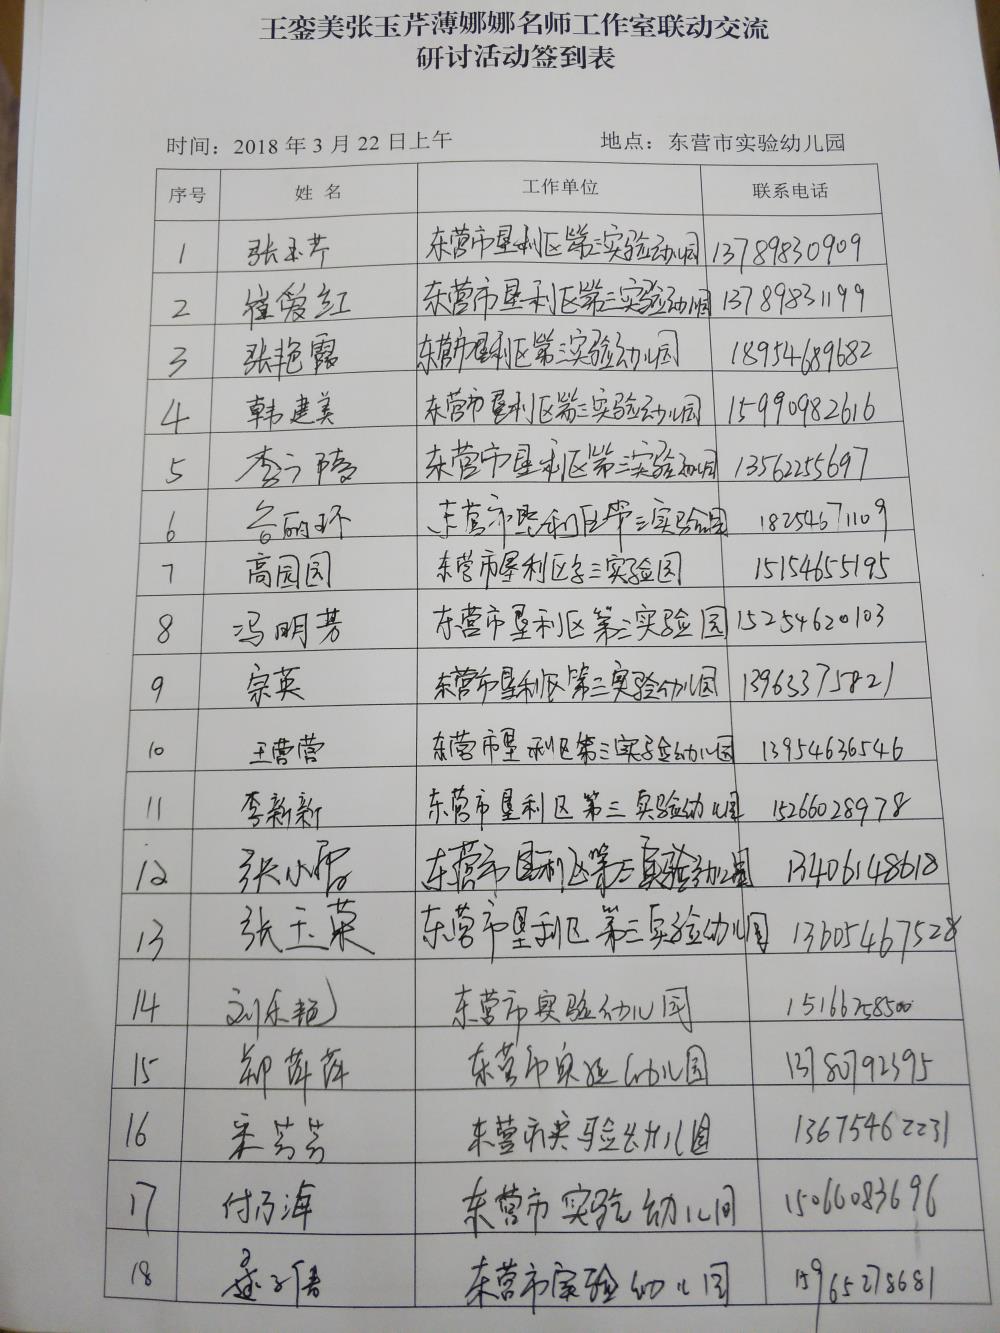 王銮美张玉芹薄娜娜名师工作室联动交流
研讨活动签到表
时间：2018年3月22日上午 地点：东营市实验幼儿园
序号 姓名 工作单位 联系电话
1 张玉芹 东营市垦利区第三实验幼儿园 13789830909
2 崔爱红 东营市垦利区第三实验幼儿园 13789831199
3 张艳霞 东营市垦利区第三实验幼儿园 18954689682
4 韩建美 东营市垦利区第三实验幼儿园 15990982616
5 李 东营市垦利区第三实验幼儿园 13562255697
6 东营市垦利区第三实验园 18254671109
7 高园园 东营市垦利区第三实验园 15154655195
8 冯明芳 东营市垦利区第三实验园 15254620103
9 宗英 东营市垦利区第三实验幼儿园 13963375821
10 王营营 东营市垦利区第三实验幼儿园 13954636546
11 李新新 东营市垦利区第三实验幼儿园 15266028978
12 张小雪 东营市垦利区第三实验幼儿园 13406148618
13 张玉荣 东营市垦利区第三实验幼儿园 13605467528
14 刘乐艳 东营市实验幼儿园 15166258500
15 郑萍萍 东营市实验幼儿园 13780792395
16 宋芳芳 东营市实验幼儿园 13675462231
17 付海 东营市实验幼儿园 15066083696
18 东营市实验幼儿园 15965278681